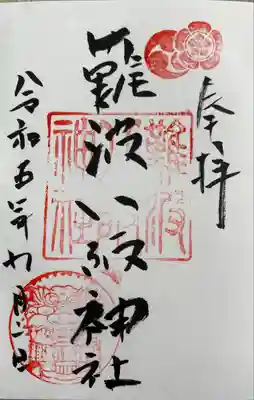 奉拝
難波八阪神社
難波
神社
令和五年九月二日